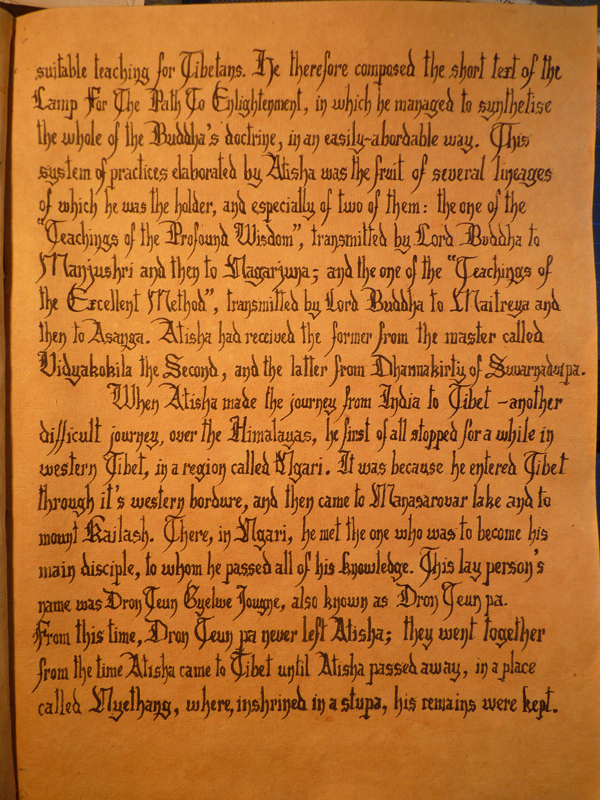 suitable teaching for Tibetans. He therefore composed the short text of the
Lamp For The Path To Enlightenment, in which he managed to synthetise
the whole of the Buddha's doctrine, in an easily-abordable way. This
system of practices elaborated by Atisha was the fruit of several lineages
of which he was the holder, and especially of two of them: the one of the
"Teachings of the Profound Wisdom", transmitted by Lord Buddha to
Manjushri and then to Nagarjuna; and the one of the "Teachings of
the Excellent Method", transmitted by Lord Buddha to Maitreya and
then to Asanga. Atisha had received the former from the master called
Vidyakokila the Second, and the latter from Dharmakirty of Suvarnadwipa.
When Atisha made the journey from India to Tibet - another
difficult journey, over the Himalayas, he first of all stopped for a while in
western Tibet, in a region called Ngari. It was because he entered Tibet
through it's western bordure, and then came to Manasarovar lake and to
mount Kailash. There, in Ngari, he met the one who was to become his
main disciple, to whom he passed all of his knowledge. This lay person's
name was Dron Teun Gyelwe Jougne, also known as Dron Teun pa.
From this time, Dron Teun pa never left Atisha; they went together
from the time Atisha came to Tibet until Atisha passed away, in a place
called Nyethang, where, inshrined in a stupa, his remains were kept.